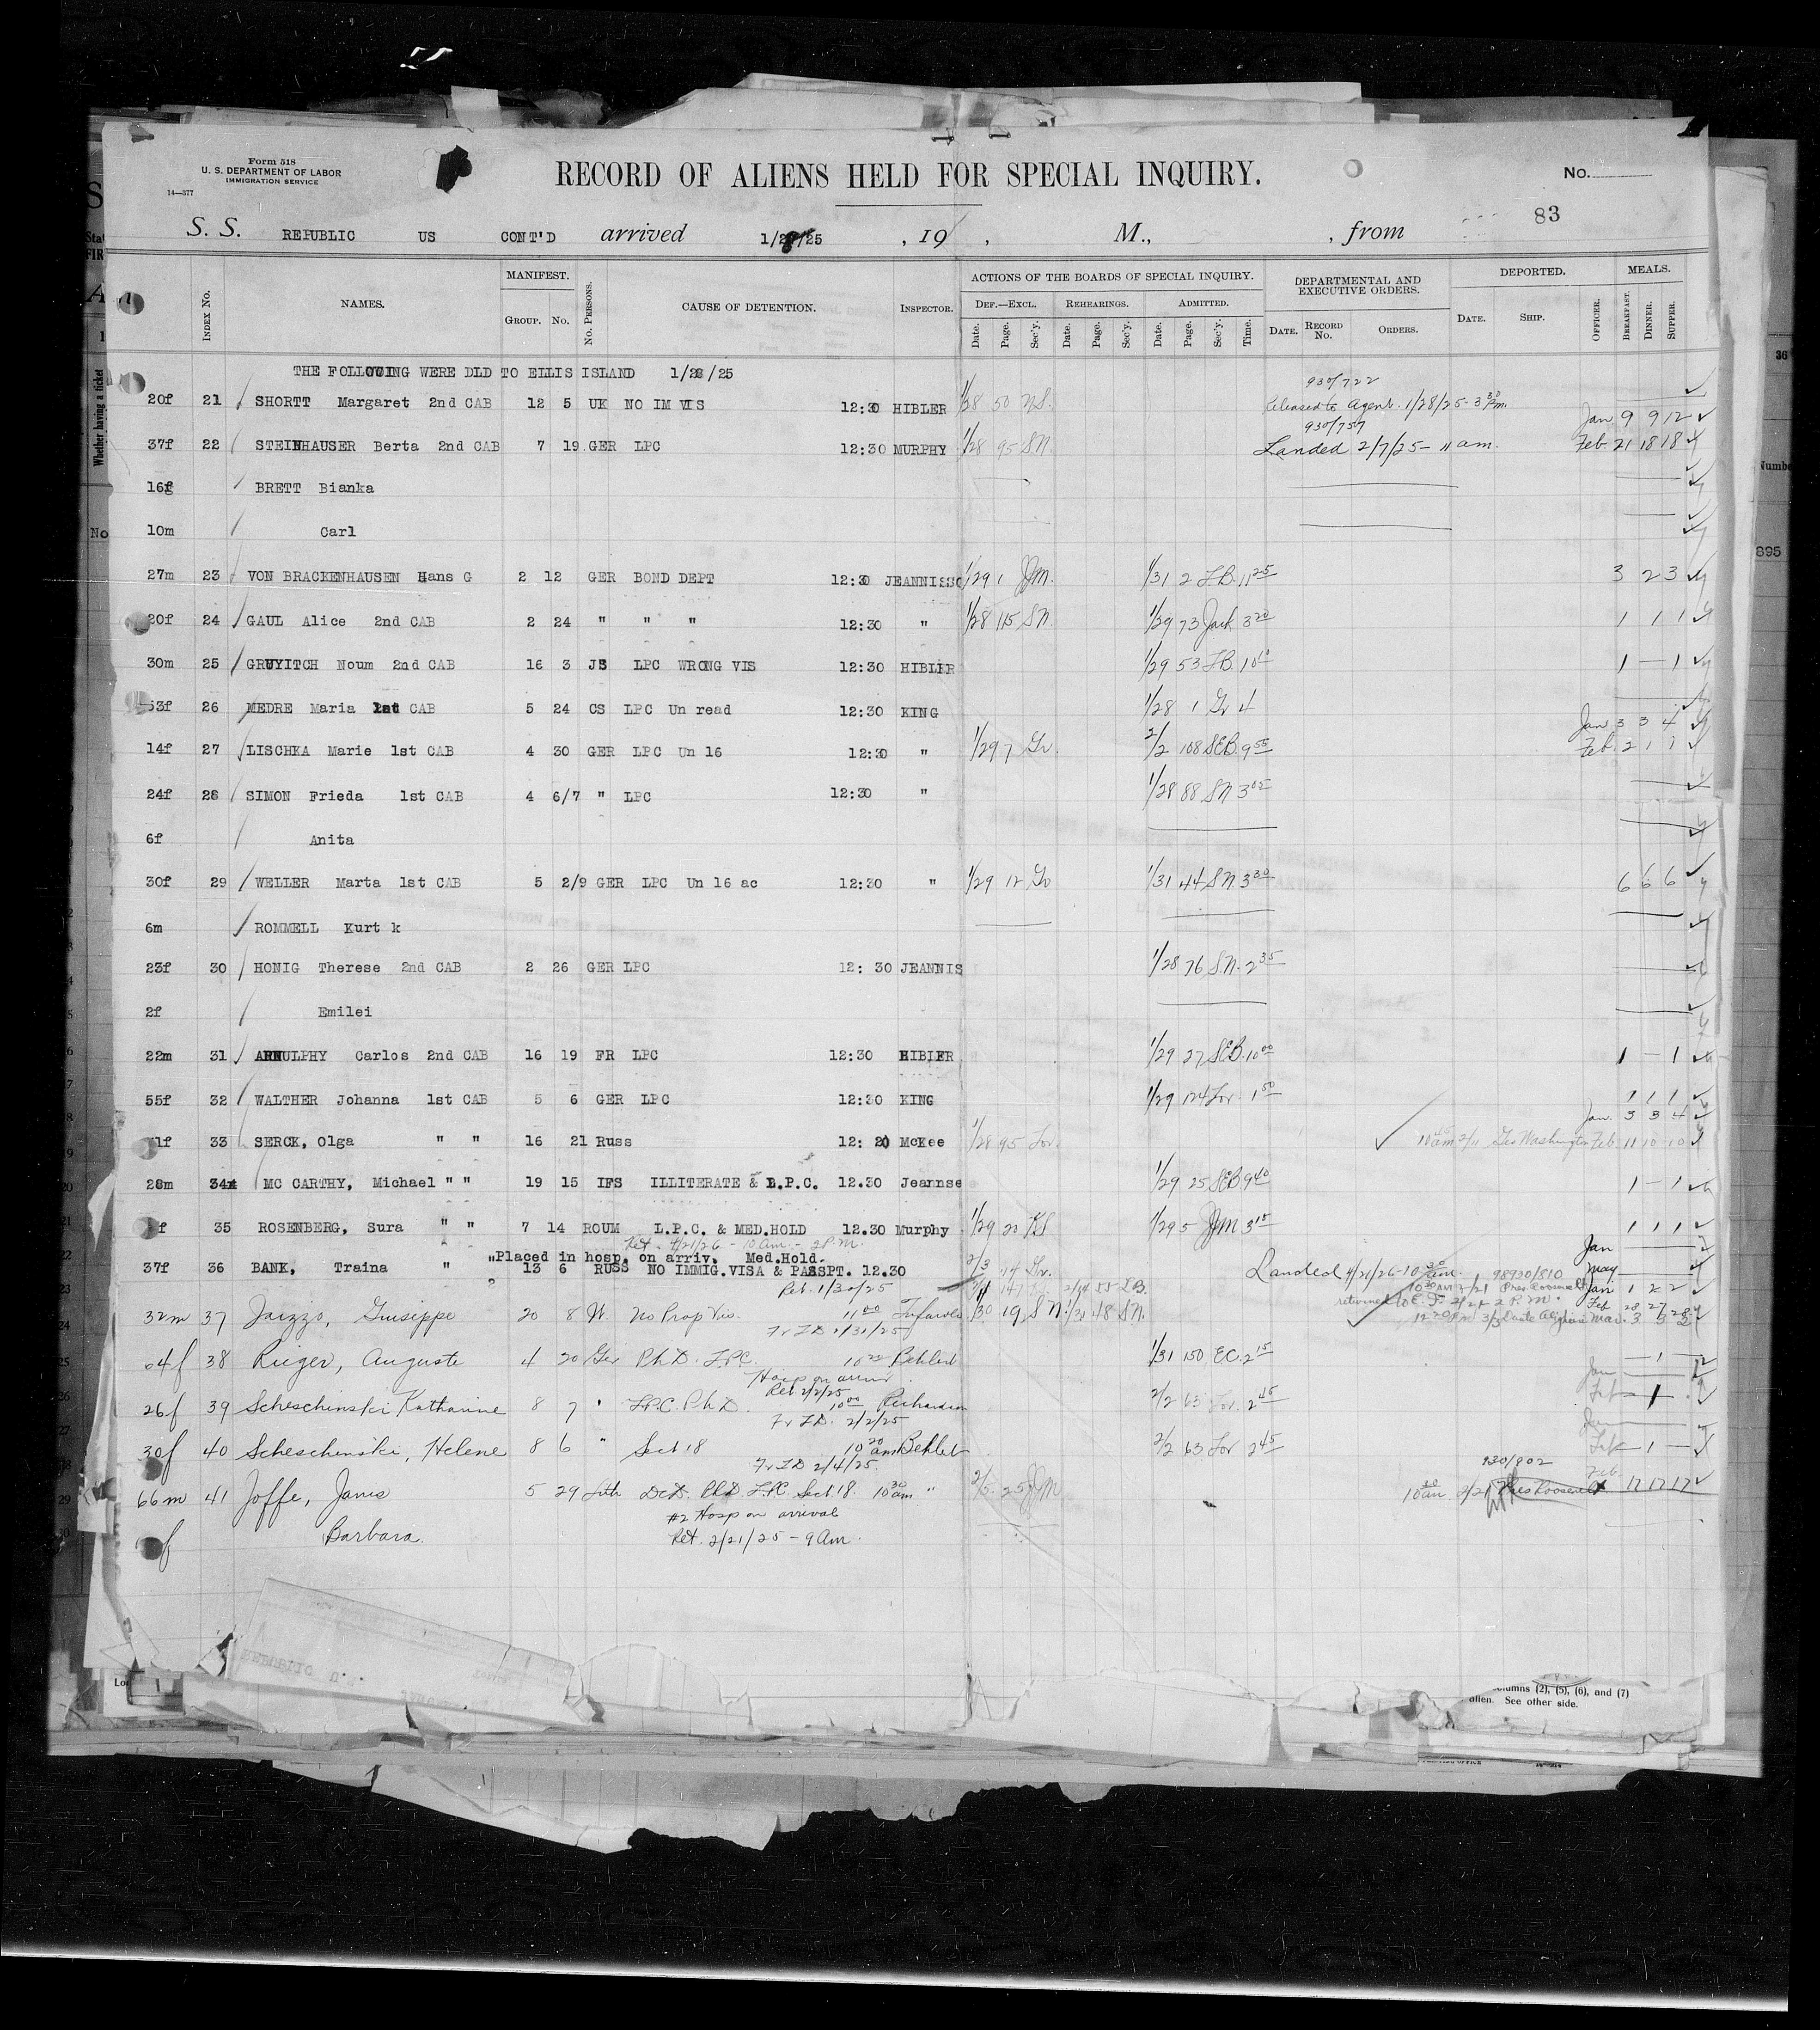 Form 518
U. S. DEPARTMENT OF LABOR
IMMIGRATION SERVICE
14—377
RECORD OF ALIENS HELD FOR SPECIAL INQUIRY.
No.
83
S. S. REPUBLIC US CONT'D arrived 1/28/25 , 19 , M., , from
INDEX No. NAMES. MANIFEST. GROUP. No. No. PERSONS. CAUSE OF DETENTION. INSPECTOR. ACTIONS OF THE BOARDS OF SPECIAL INQUIRY. DEF.—EXCL. Date. Page. Sec'y. REHEARINGS. Date. Page. Sec'y. ADMITTED. Date. Page. Sec'y. Time. DEPARTMENTAL AND EXECUTIVE ORDERS. DATE. RECORD No. ORDERS. DEPORTED. DATE. SHIP. OFFICER. MEALS. BREAKFAST. DINNER. SUPPER.
THE FOLLOWING WERE DLD TO ELLIS ISLAND 1/28/25
930/722
20f 21 SHORTT Margaret 2nd CAB 12 5 UK NO IM VIS 12:30 HIBLER 1/28 50 N.S. Released to Agent. 1/28/25 - 3 30 Pm.
930/757 Jan 9 9 12
37f 22 STEINHAUSER Berta 2nd CAB 7 19 GER LPC 12:30 MURPHY 1/28 95 S.N. Landed 2/7/25 - 11 am. Feb 21 18 18
16f BRETT Bianka
10m Carl
27m 23 VON BRACKENHAUSEN Hans G 2 12 GER BOND DEPT 12:30 JEANNISSO 1/29 1 JJM. 1/31 2 L.B. 11 25 3 2 3
20f 24 GAUL Alice 2nd CAB 2 24 " " " 12:30 " 1/28 115 S.N. 1/29 73 Jack 3 20 1 1 1
30m 25 GRUYITCH Noum 2nd CAB 16 3 JS LPC WRONG VIS 12:30 HIBLER 1/29 53 L.B. 10 10 1 — 1
53f 26 MEDRE Maria 1st CAB 5 24 CS LPC Un read 12:30 KING 1/28 1 Gr 4
Jan 3 3 4
14f 27 LISCHKA Marie 1st CAB 4 30 GER LPC Un 16 12:30 " 1/29 7 Gr. 2/2 108 SEB. 9 55 Feb. 2 1 1
24f 28 SIMON Frieda 1st CAB 4 6/7 " LPC 12:30 " 1/28 88 S.N. 3 05
6f Anita
30f 29 WELLER Marta 1st CAB 5 2/9 GER LPC Un 16 ac 12:30 " 1/29 12 Gr 1/31 44 S.N. 3 30 6 6 6
6m ROMMELL Kurt k
23f 30 HONIG Therese 2nd CAB 2 26 GER LPC 12: 30 JEANNIS 1/28 76 S.N. 2 35
2f Emilei
22m 31 ARNULPHY Carlos 2nd CAB 16 19 FR LPC 12:30 HIBLER 1/29 27 SEB. 10 00 1 — 1
55f 32 WALTHER Johanna 1st CAB 5 6 GER LPC 12:30 KING 1/29 124 Lor. 1 50 1 1 1
Jan. 3 3 4
1f 33 SERCK, Olga " " 16 21 Russ 12: 20 McKee 1/28 95 Lor. 2/11 Geo Washington Feb 11 10 10
28m 34 MC CARTHY, Michael " " 19 15 IFS ILLITERATE & L.P.C. 12.30 Jeannse 1/29 25 SEB 9 40 1 — 1
f 35 ROSENBERG, Sura " " 7 14 ROUM L.P.C. & MED.HOLD 12.30 Murphy 1/29 20 1/29 5 JJM 3 15 1 1 1
Ret. 4/21/26 - 10 Am. - 2 P.M. Jan
"Placed in hosp. on arriv. Med.Hold. May
37f 36 BANK, Traina " 13 6 RUSS NO IMMIG.VISA & PASSPT. 12.30 2/3 14 Gr. Landed 4/21/26 - 10 30 am. 98930/810
Jan 1 2 2
32m 37 Jaizzo, Giuseppe 20 8 No Prop Vis. 11 00 1/30 19 S.N. 1/31 48 S.N. Feb 28 27 28
Fr TD 1/31/25 Mar. 3 3 2
64f 38 Rieger, Auguste 4 20 Ger PhD. LPC. 10 20 Behlert 1/31 150 EC. 2 15 1
Hosp on arriv.
Ret 2/2/25 Jan
26f 39 Scheschinski Katharine 8 7 " LPC. PhD. 10 00 Richardson 2/2 63 Lor. 2 45 Feb — 1
Fr TD. 2/2/25 Jan
30f 40 Scheschinski, Helene 8 6 " Sect 18 10 20 am Behlert 2/2 63 Lor 2 45 Feb — 1 —
Fr TD 2/4/25. 930/802
66m 41 Joffe, Janis 5 29 Lith DCD. PhD LPC Sect 18. 10 30 am " 2/5. 25 JJM 10 30 am 2/21 Pres Roosevelt Feb. 17 17 17
#2 Hosp on arrival
f Barbara.
Ret. 2/21/25 - 9 Am.
columns (2), (5), (6), and (7)
alien. See other side.